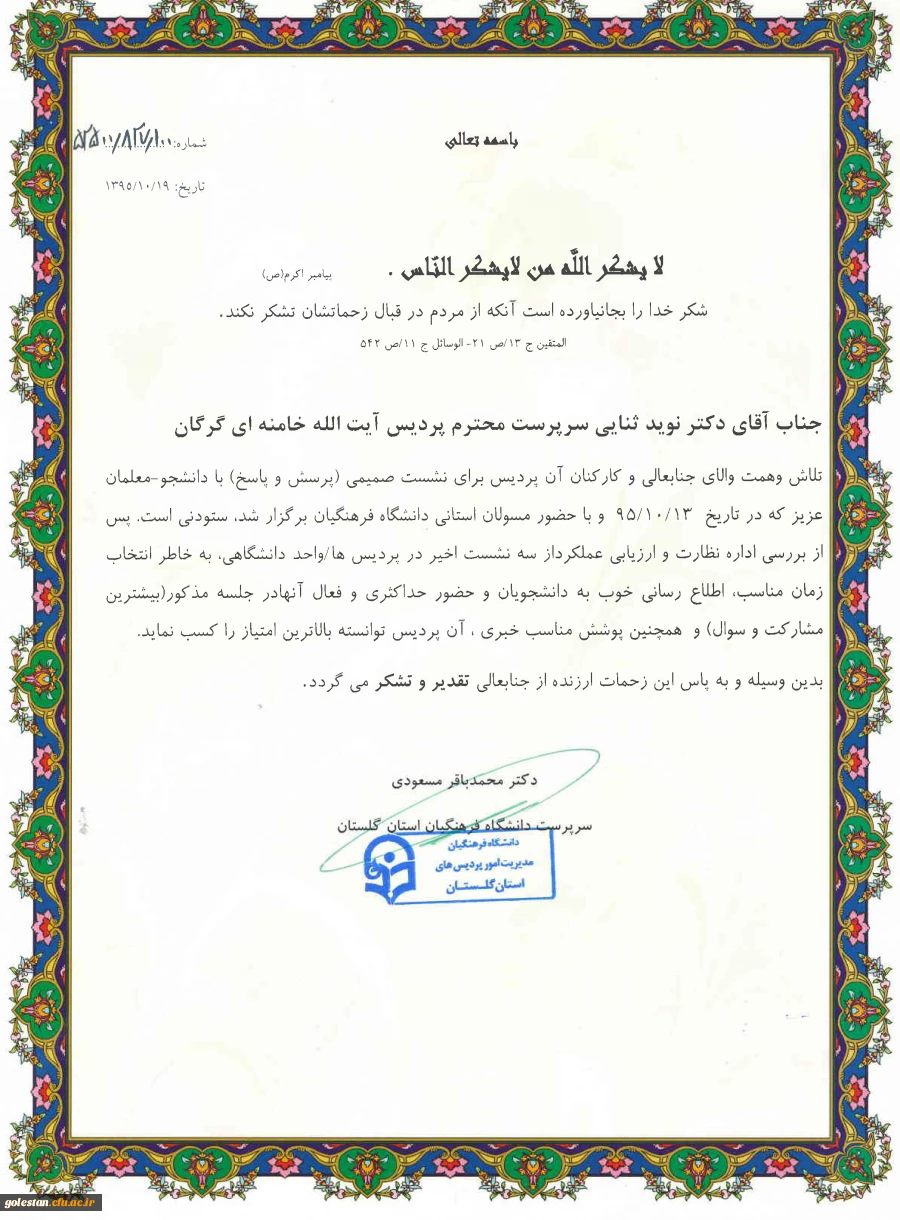 باسمه تعالی
شماره:
تاریخ: ۱۳۹۵/۱۰/۱۹
لا یشکر اللَّه من لایشکر النّاس . پیامبر اکرم(ص)
شکر خدا را بجانیاورده است آنکه از مردم در قبال زحماتشان تشکر نکند.
المتقین ج ۱۳/ص ۲۱- الوسائل ج ۱۱/ص ۵۴۲
جناب آقای دکتر نوید ثنایی سرپرست محترم پردیس آیت الله خامنه ای گرگان
تلاش وهمت والای جنابعالی و کارکنان آن پردیس برای نشست صمیمی (پرسش و پاسخ) با دانشجو-معلمان
عزیز که در تاریخ ۹۵/۱۰/۱۳ و با حضور مسولان استانی دانشگاه فرهنگیان برگزار شد، ستودنی است. پس
از بررسی اداره نظارت و ارزیابی عملکرداز سه نشست اخیر در پردیس ها/واحد دانشگاهی، به خاطر انتخاب
زمان مناسب، اطلاع رسانی خوب به دانشجویان و حضور حداکثری و فعال آنهادر جلسه مذکور(بیشترین
مشارکت و سوال) و همچنین پوشش مناسب خبری ، آن پردیس توانسته بالاترین امتیاز را کسب نماید.
بدین وسیله و به پاس این زحمات ارزنده از جنابعالی تقدیر و تشکر می گردد.
دکتر محمدباقر مسعودی
سرپرست دانشگاه فرهنگیان استان گلستان
دانشگاه فرهنگیان
مدیریت امور پردیس های
استان گلستان
golestan.cfu.ac.ir